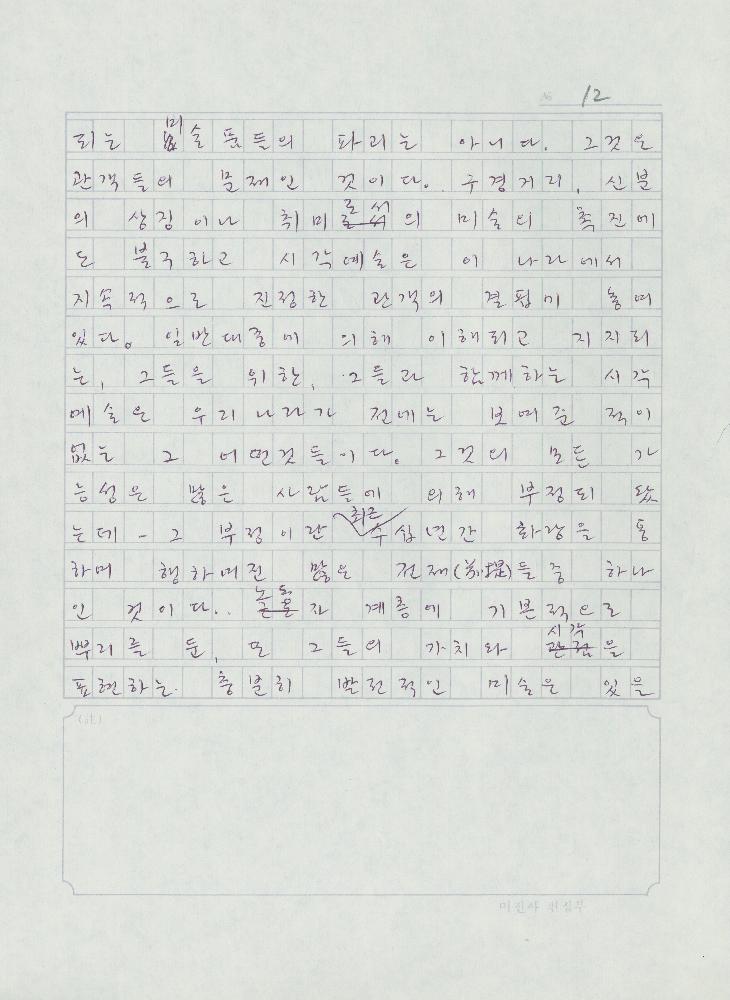 No 12
되는 미술품들의 파괴는 아니다. 그것은
관객들의 문제인 것이다. 구경거리, 신분
의 상징이나 취미로서의 미술의 촉진에
도 불구하고 시각예술은 이 나라에서
지속적으로 진정한 관객의 결핍이 놓여
있다. 일반대중에 의해 이해되고 지지되
는, 그들을 위한, 그들과 함께하는 시각
예술은 우리나라가 전에는 보여준 적이
없는 그 어떤것들이다. 그것의 모든 가
능성은 많은 사람들에 의해 부정되 왔
는데 - 그 부정이란 최근 수십년간 화랑을 통
하며 행하며진 많은 전제(前提)들 중 하나
인 것이다.. 노동자 계층에 기본적으로
뿌리를 둔, 또 그들의 가치와 시각을
표현하는 충분히 발전적인 미술은 있을
(註)
미진사 편집부